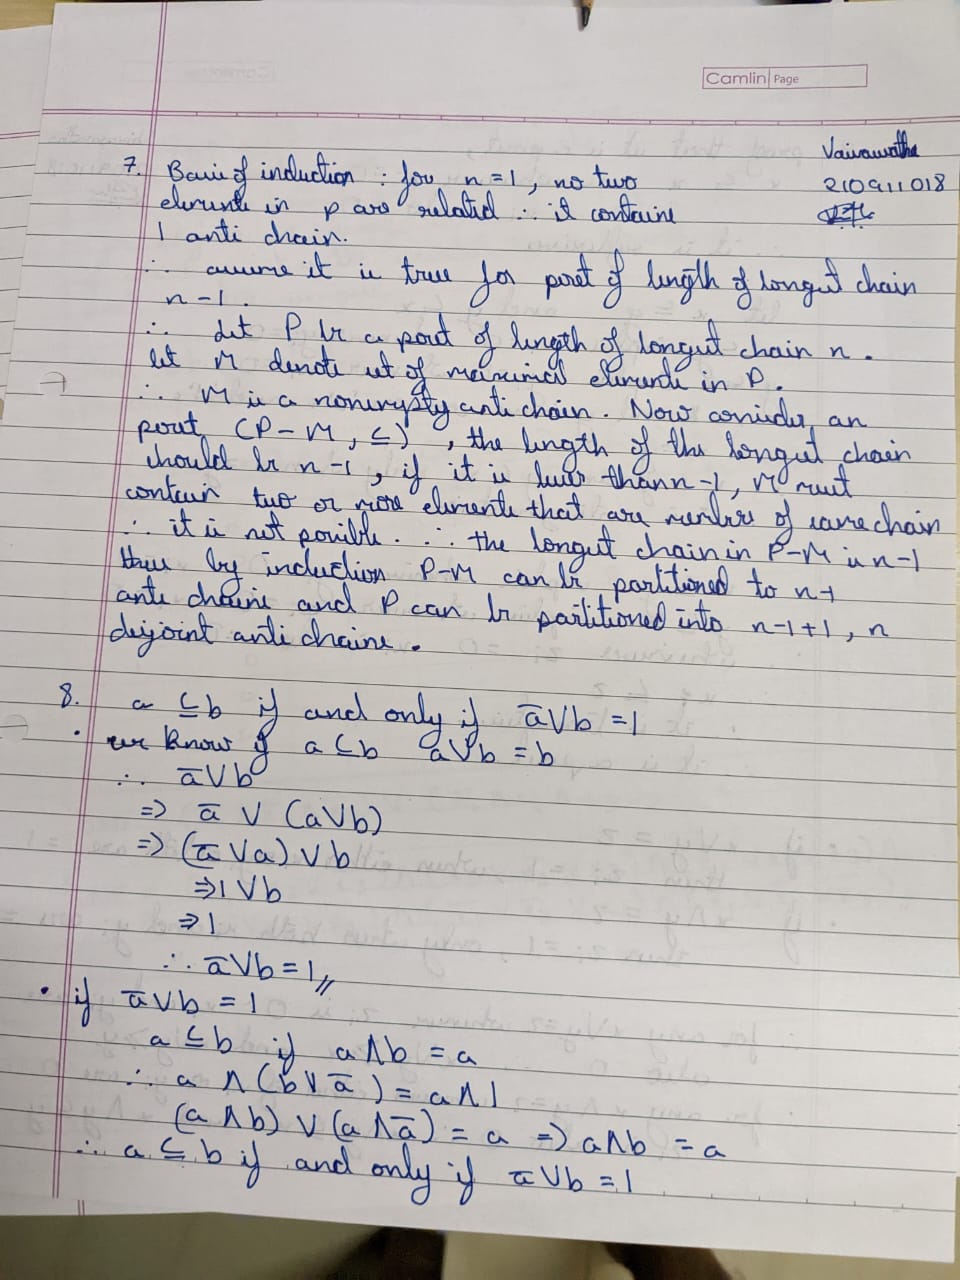 Camlin Page
Vaivawatha
210911018
7. Basis of induction : for n=1, no two
elements in p are related ∴ it contains
1 anti chain.
∴ assume it is true for poset of length of longest chain
n-1.
∴ Let P be a poset of length of longest chain n.
let M denote set of maximal elements in P.
∴ M is a nonempty anti chain. Now consider an
poset (P-M, ≤), the length of the longest chain
should be n-1, if it is less than n-1, M must
contain two or more elements that are members of same chain
∴ it is not possible. ∴ the longest chain in P-M is n-1
thus by induction P-M can be partitioned to n-1
anti chains and P can be partitioned into n-1+1, n
disjoint anti chains.
8. a ⊆ b if and only if a̅ V b = 1
• we know if a ⊆ b a V b = b
∴ a̅ V b
=> a̅ V (a V b)
=> (a̅ V a) V b
=> 1 V b
=> 1
∴ a̅ V b = 1 //
• if a̅ V b = 1
a ⊆ b if a Λ b = a
∴ a Λ (b V a̅) = a Λ 1
(a Λ b) V (a Λ a̅) = a => a Λ b = a
∴ a ⊆ b if and only if a̅ V b = 1